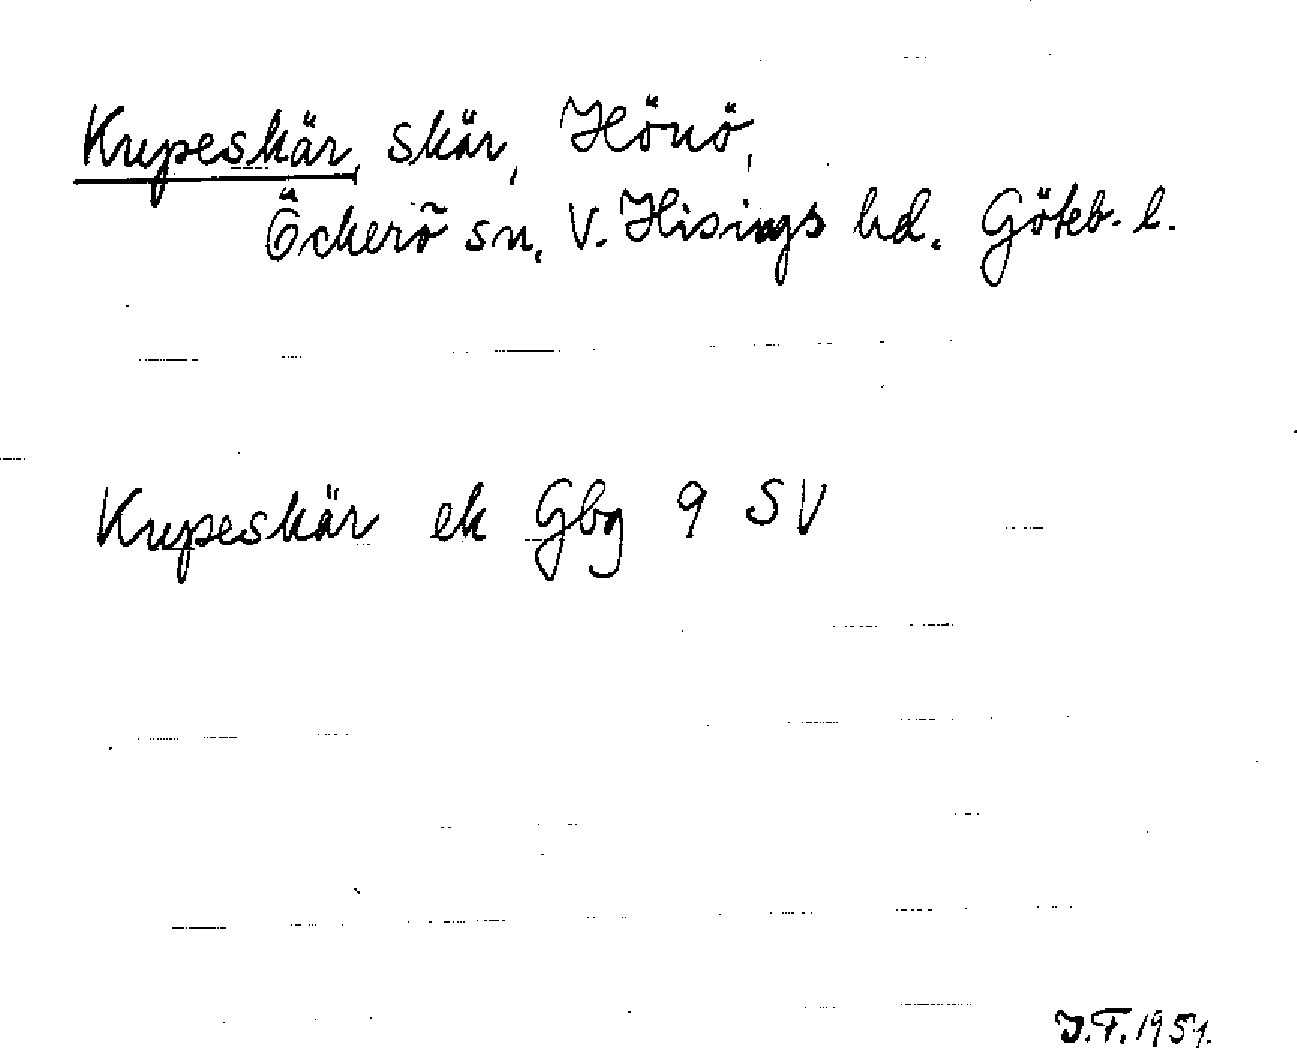 Krypeskär, skär, Hönö,
Öckerö sn, V. Hisings hd. Göteb. l.
Krypeskär ek Gbg 9 SV
J.F. 1951.